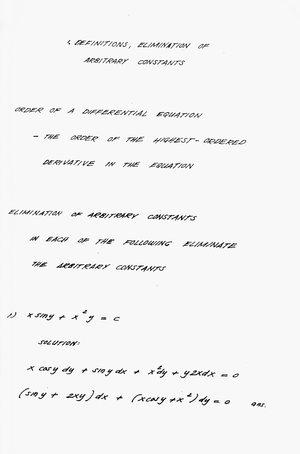 1. DEFINITIONS, ELIMINATION OF
ARBITRARY CONSTANTS
ORDER OF A DIFFERENTIAL EQUATION
- THE ORDER OF THE HIGHEST-ORDERED
DERIVATIVE IN THE EQUATION
ELIMINATION OF ARBITRARY CONSTANTS
IN EACH OF THE FOLLOWING ELIMINATE
THE ARBITRARY CONSTANTS
1) x sin y + x² y = c
SOLUTION:
x cos y dy + sin y dx + x² dy + y 2x dx = 0
(sin y + 2xy) dx + (x cos y + x²) dy = 0 ans.